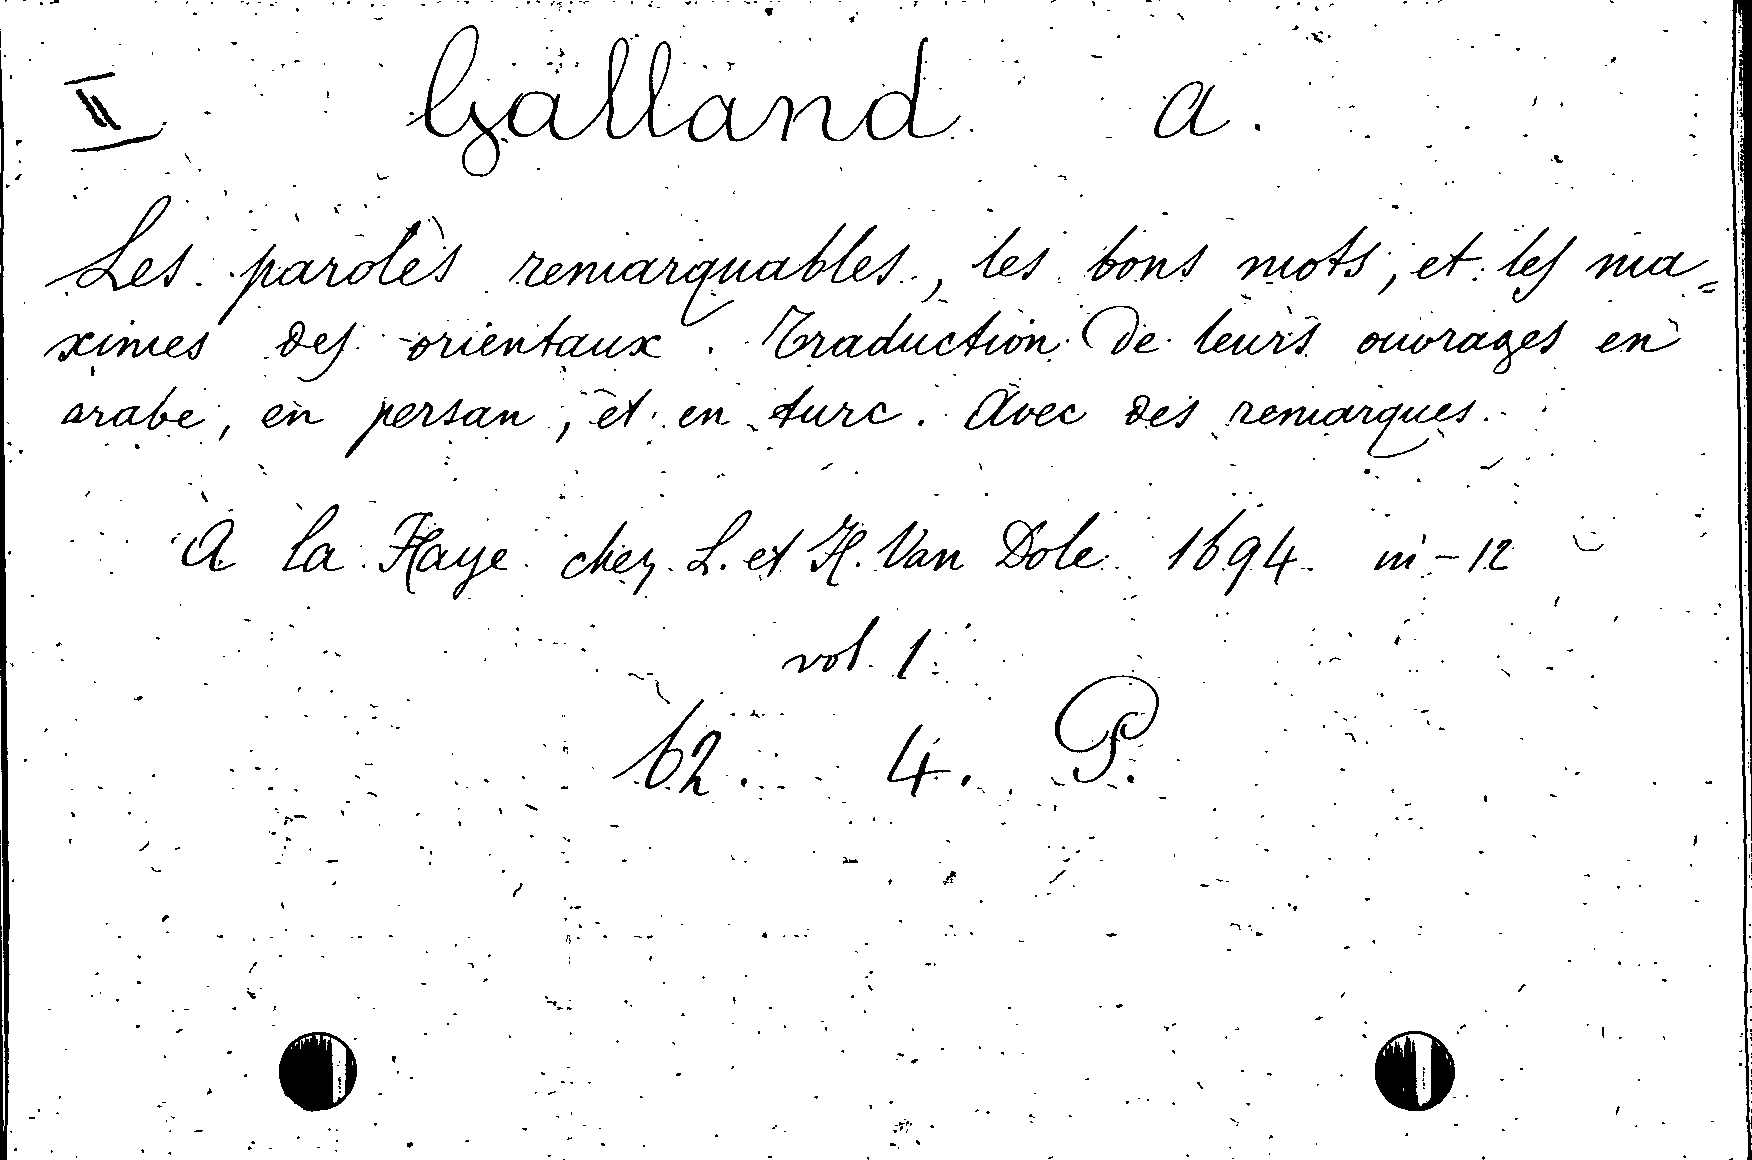 II Galland A.
Les paroles remarquables, les bons mots, et les ma=
ximes des orientaux. Traduction de leurs ouvrages en
arabe, en persan, et en turc. Avec des remarques.
A la Haye chez L. et H. Van Dole 1694 in-12
vol. 1.
62. 4. P.